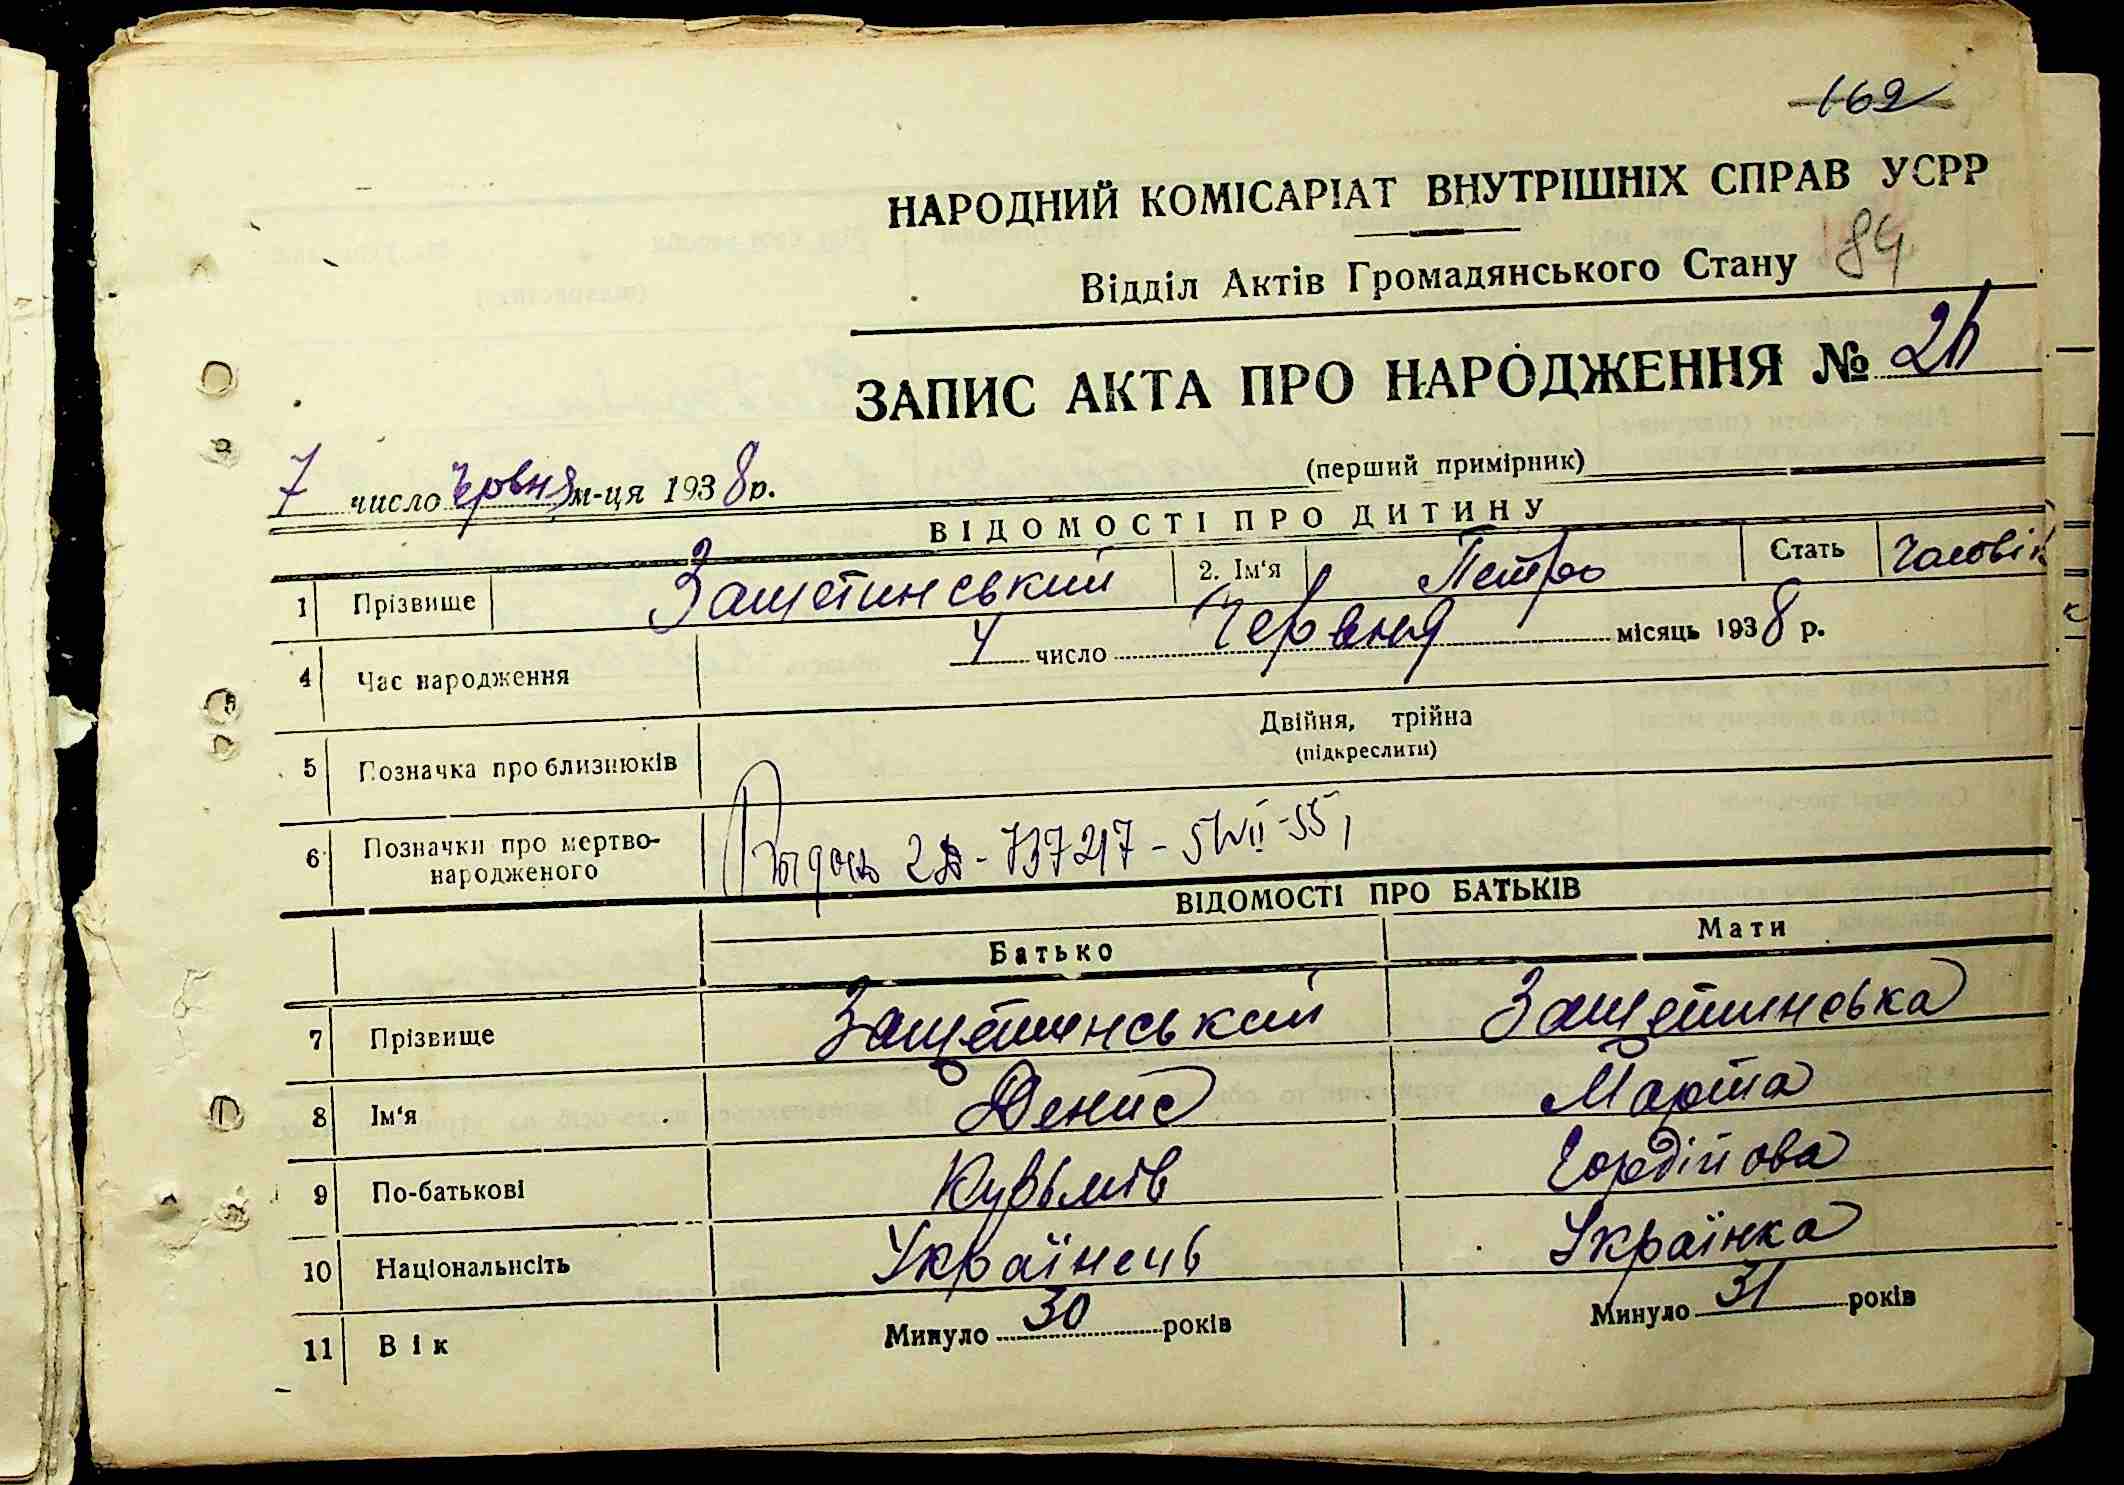 162
НАРОДНИЙ КОМІСАРІАТ ВНУТРІШНІХ СПРАВ УСРР
Відділ Актів Громадянського Стану 84
ЗАПИС АКТА ПРО НАРОДЖЕННЯ №
7 число червня м-ця 1938 р.
(перший примірник)
ВІДОМОСТІ ПРО ДИТИНУ
1 Прізвище Защетинський 2. Ім'я Петро Стать Чоловік
4 Час народження 4 число Червня місяць 1938 р.
5 Позначка про близнюків Двійня, трійна
(підкреслити)
6 Позначки про мертво-
народженого
ВІДОМОСТІ ПРО БАТЬКІВ
Батько Мати
7 Прізвище Защетинський Защетинська
8 Ім'я Денис Марта
9 По-батькові Кузьмів Гордійова
10 Національнсіть Українець Українка
11 Вік Минуло 30 років Минуло 31 років